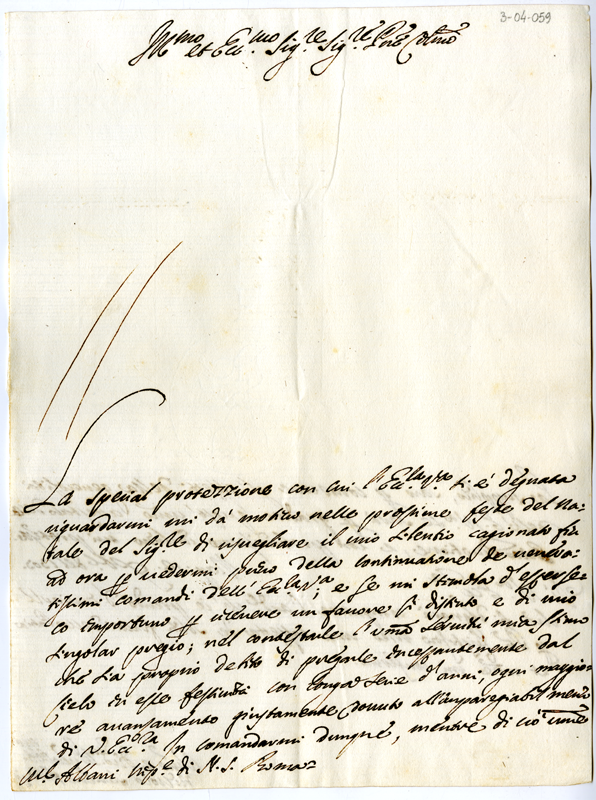 3-04-059
Ill.mo et Ecc.mo Sig.re Sig.re P.ne Col.mo
La special protezzione con cui l'Ecc.la V.a si è degnata
riguardarmi mi dà motivo nelle prossime feste del Na:
tale del Sig.re di risvegliare il mio silentio cagionato fin
ad ora p vedermi privo della continuatione de venera:
tissimi comandi dell'Ecc.la V.a; e se mi stimola d'esser se:
co importuno p ricevere un favore sì distinto e di mio
singolar pregio; nel contestarle l'uma servitù mia stimo
che sia proprio debito di pregarle incessantemente dal
Cielo in esse festività con longa serie d'anni, ogni maggio:
re avansamento giustamente dovuto all'impareggiabil merito
di V. Ecc.za In comandarmi dunque, mentre di ciò vivame
Albani Nip.e di N. S. Roma=